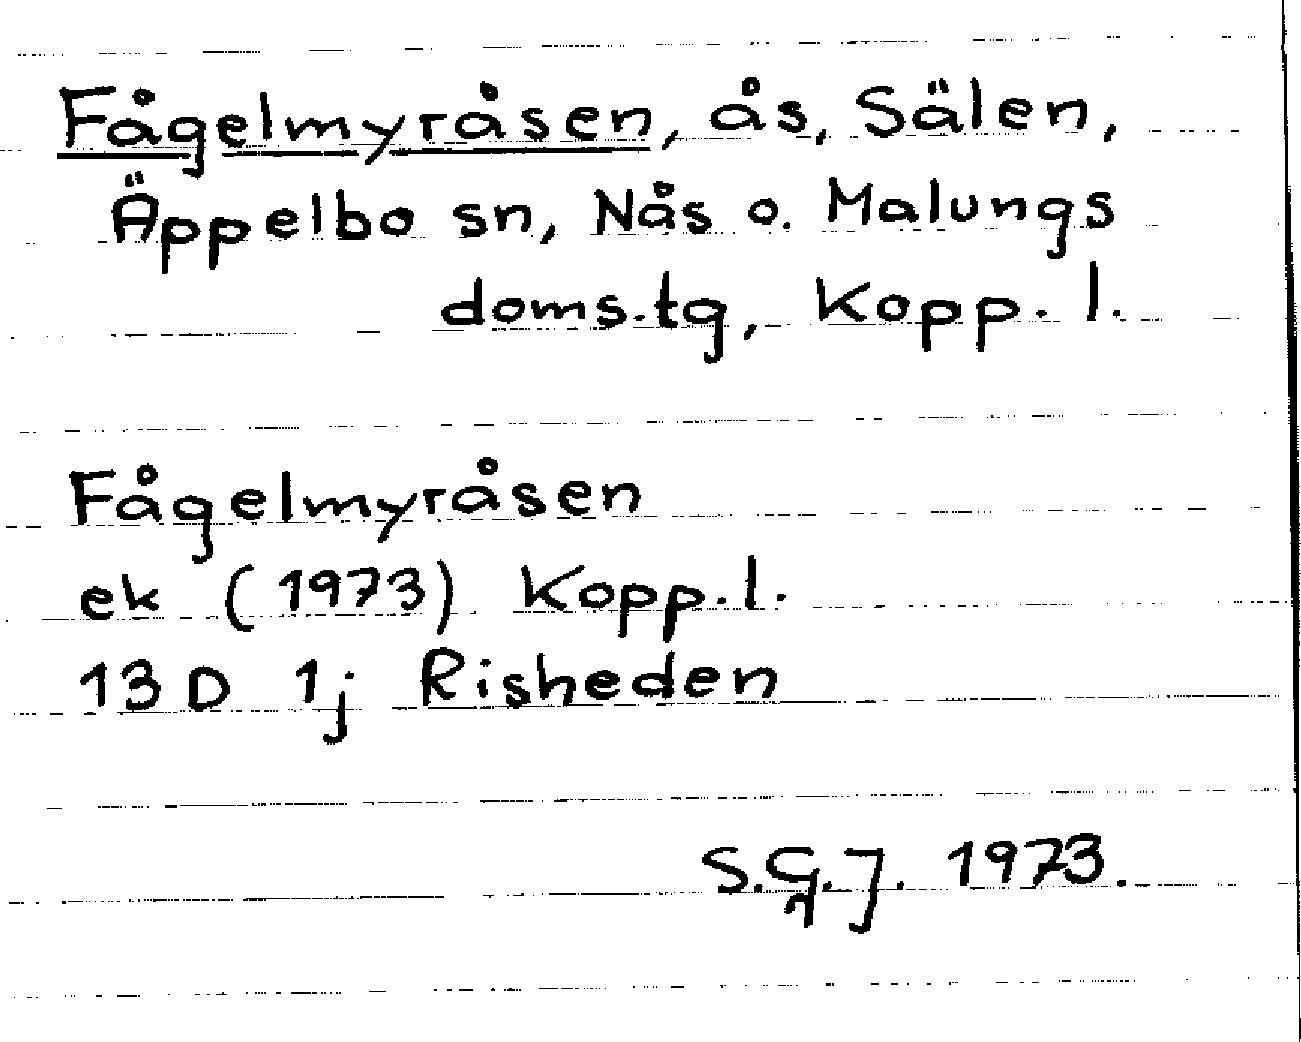 Fågelmyråsen, ås, Sälen,
Äppelbo sn, Nås o. Malungs
doms.tg, Kopp. l.
Fågelmyråsen
ek (1973) Kopp. l.
13 D 1j Risheden
S.G.J. 1973.